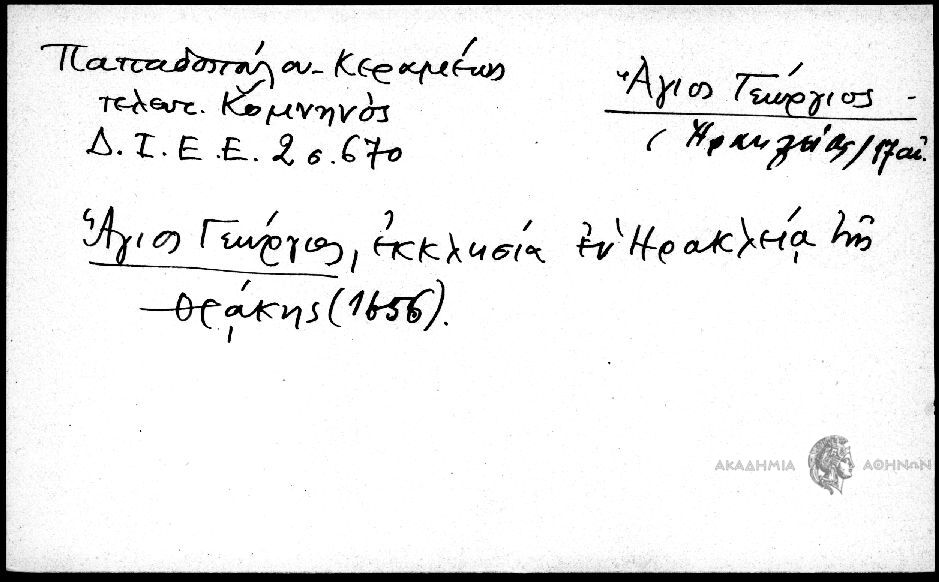 Παπαδοπούλου-Κεραμέως
τελευτ. Κομνηνὸς
Δ. Ι. Ε. Ε. 2 σ. 670
Ἅγιος Γεώργιος -
(Ἡρακλείας/17 αἰ.
Ἅγιος Γεώργιος, ἐκκλησία ἐν Ἡρακλείᾳ τῆς
Θρᾴκης (1656).
ΑΚΑΔΗΜΙΑ ΑΘΗΝΩΝ